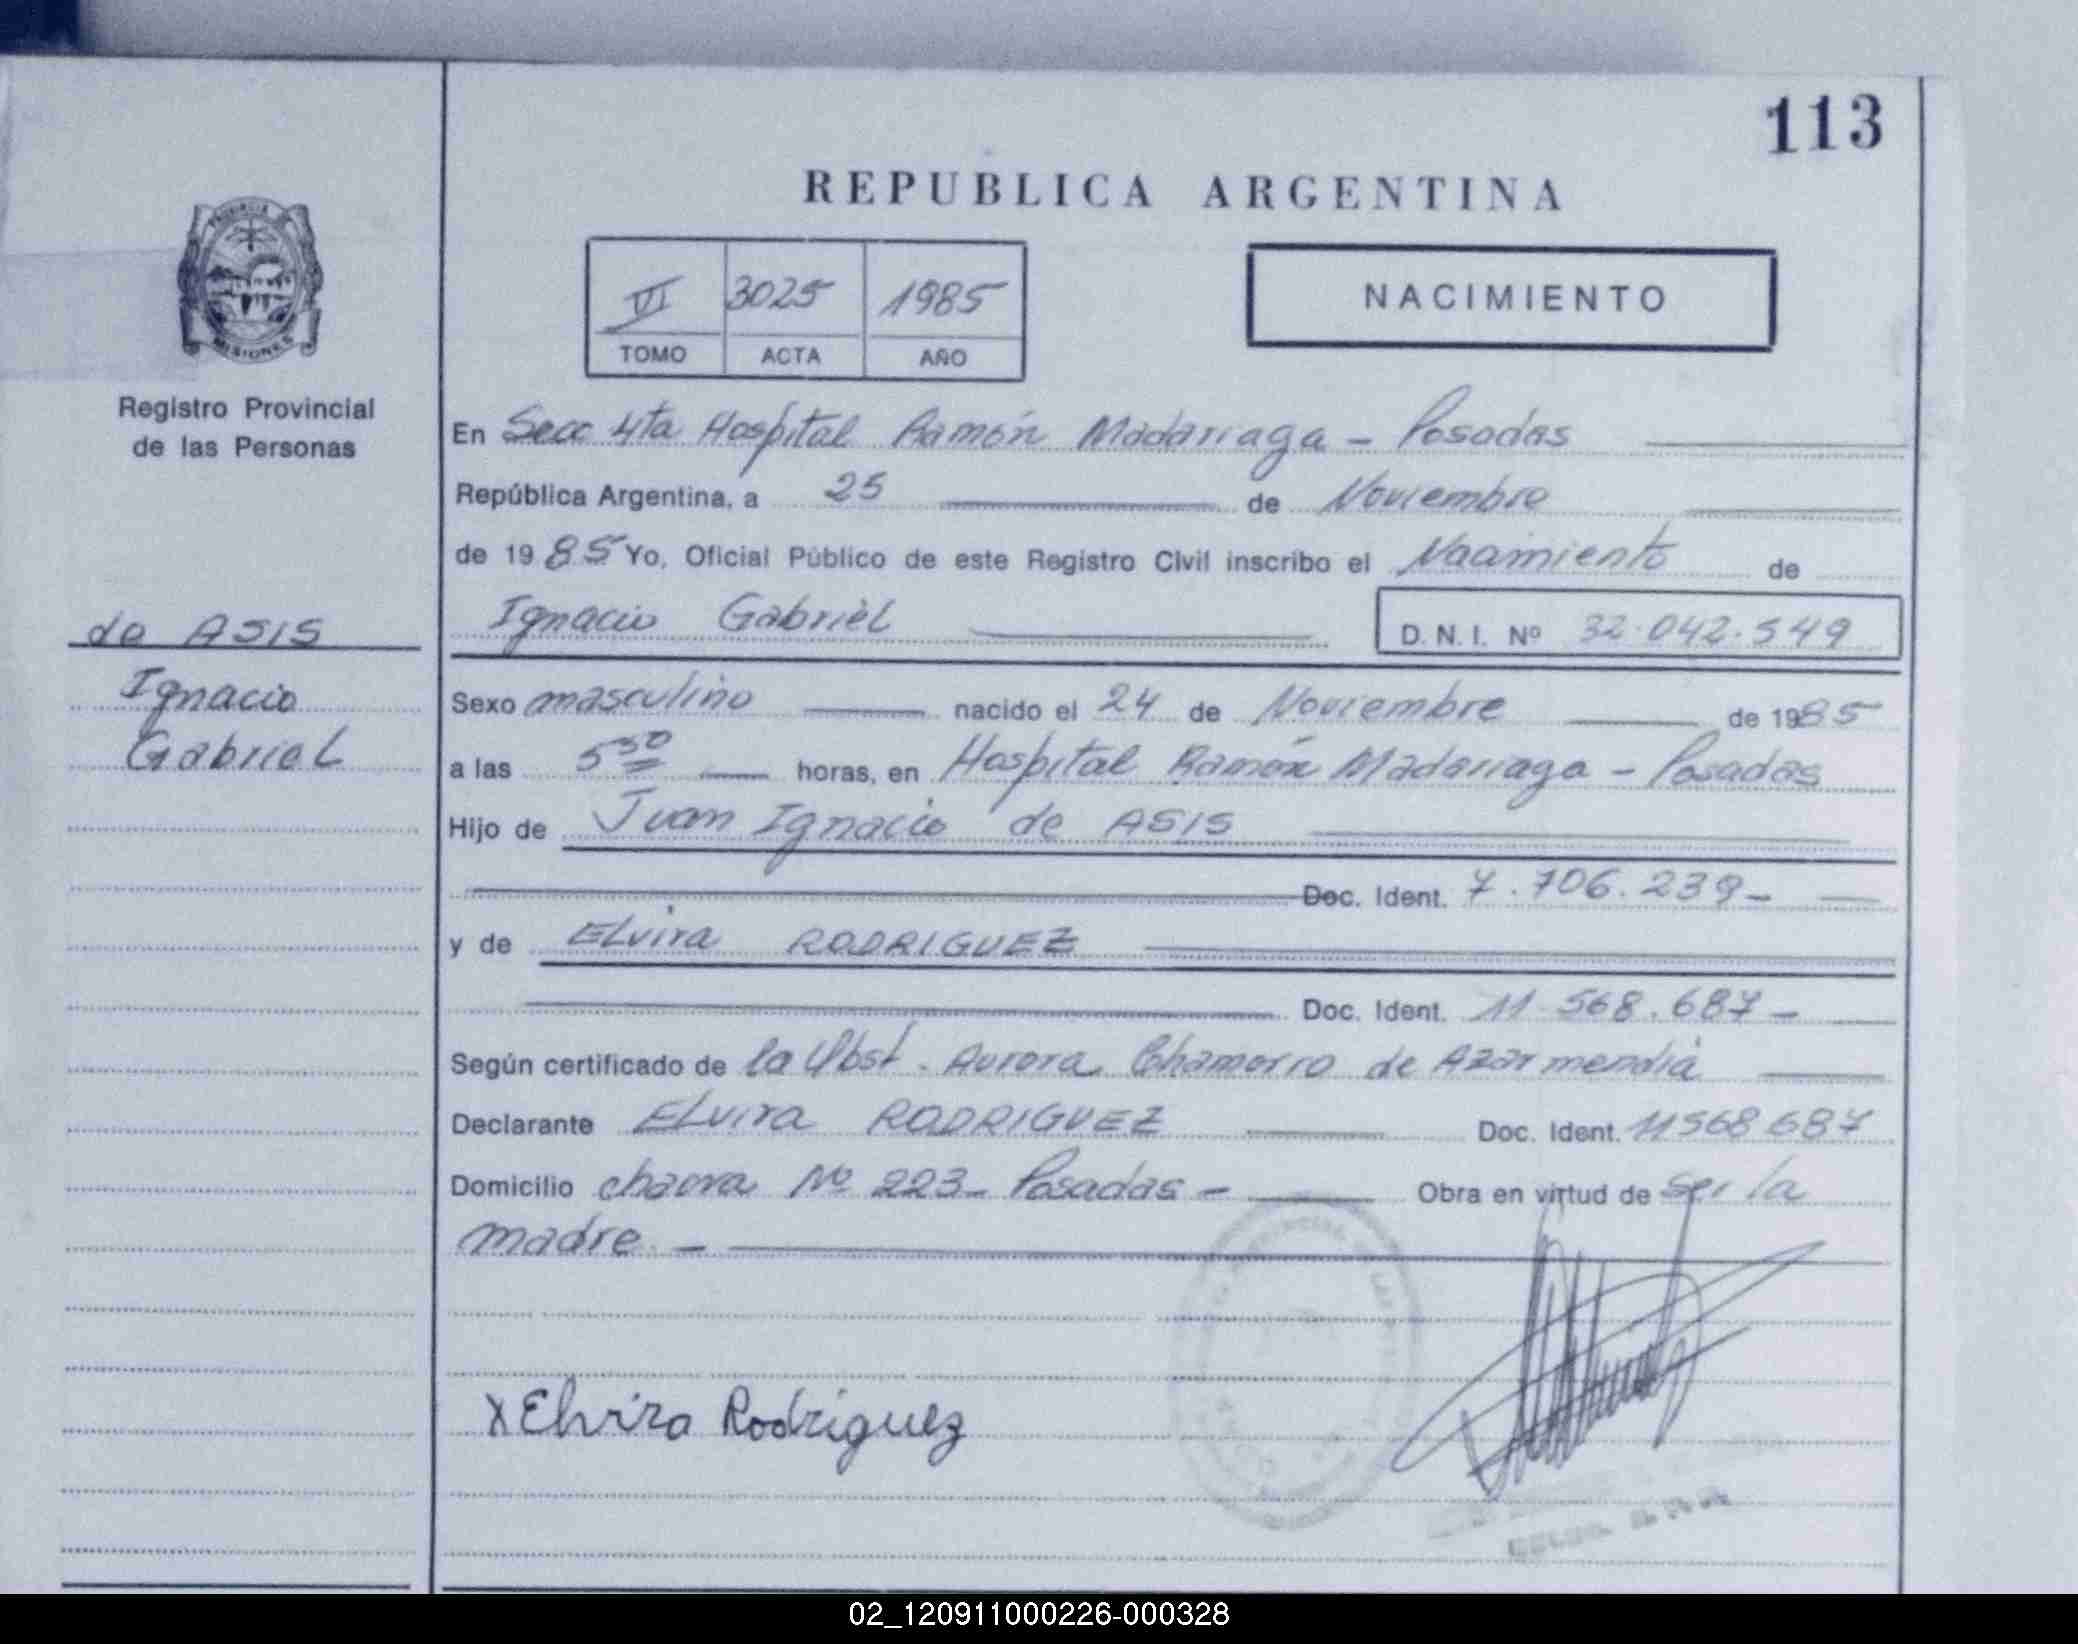 113
REPUBLICA ARGENTINA
PROVINCIA DE
MISIONES
Registro Provincial
de las Personas
VI 3025 1985
TOMO ACTA AÑO
NACIMIENTO
En Secc 4ta Hospital Ramón Madariaga - Posadas
República Argentina, a 25 de Noviembre
de 1985 Yo, Oficial Público de este Registro Civil inscribo el Nacimiento de
Ignacio Gabriel D. N. I. Nº 32.042.549
de ASIS
Ignacio
Gabriel
Sexo masculino nacido el 24 de Noviembre de 1985
a las 5 30 horas, en Hospital Ramón Madariaga - Posadas
Hijo de Juan Ignacio de ASIS
Doc. Ident. 7.706.239-
y de Elvira RODRIGUEZ
Doc. Ident. 11 568.687-
Según certificado de la Obst. Aurora Chamorro de Azarmendia
Declarante Elvira RODRIGUEZ Doc. Ident. 11568687
Domicilio chacra Nº 223- Posadas - Obra en virtud de ser la
madre. -
X Elvira Rodriguez
02_120911000226-000328